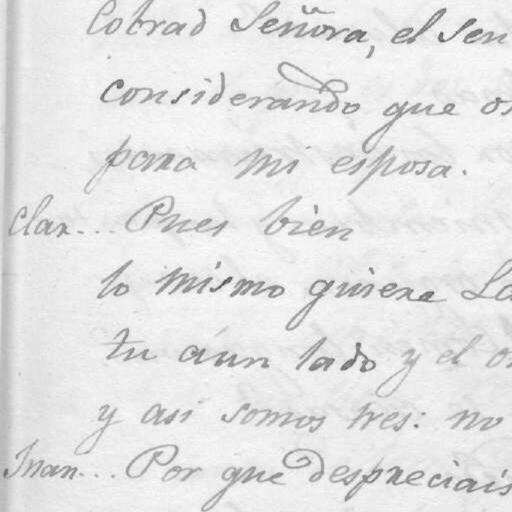 Cobrad Señora, el sen
considerando que os
para mi esposa.
Clar... Pues bien
lo mismo quiere La
tu á un lado y el o
y asi somos tres: no
Juan... Por que despreciais